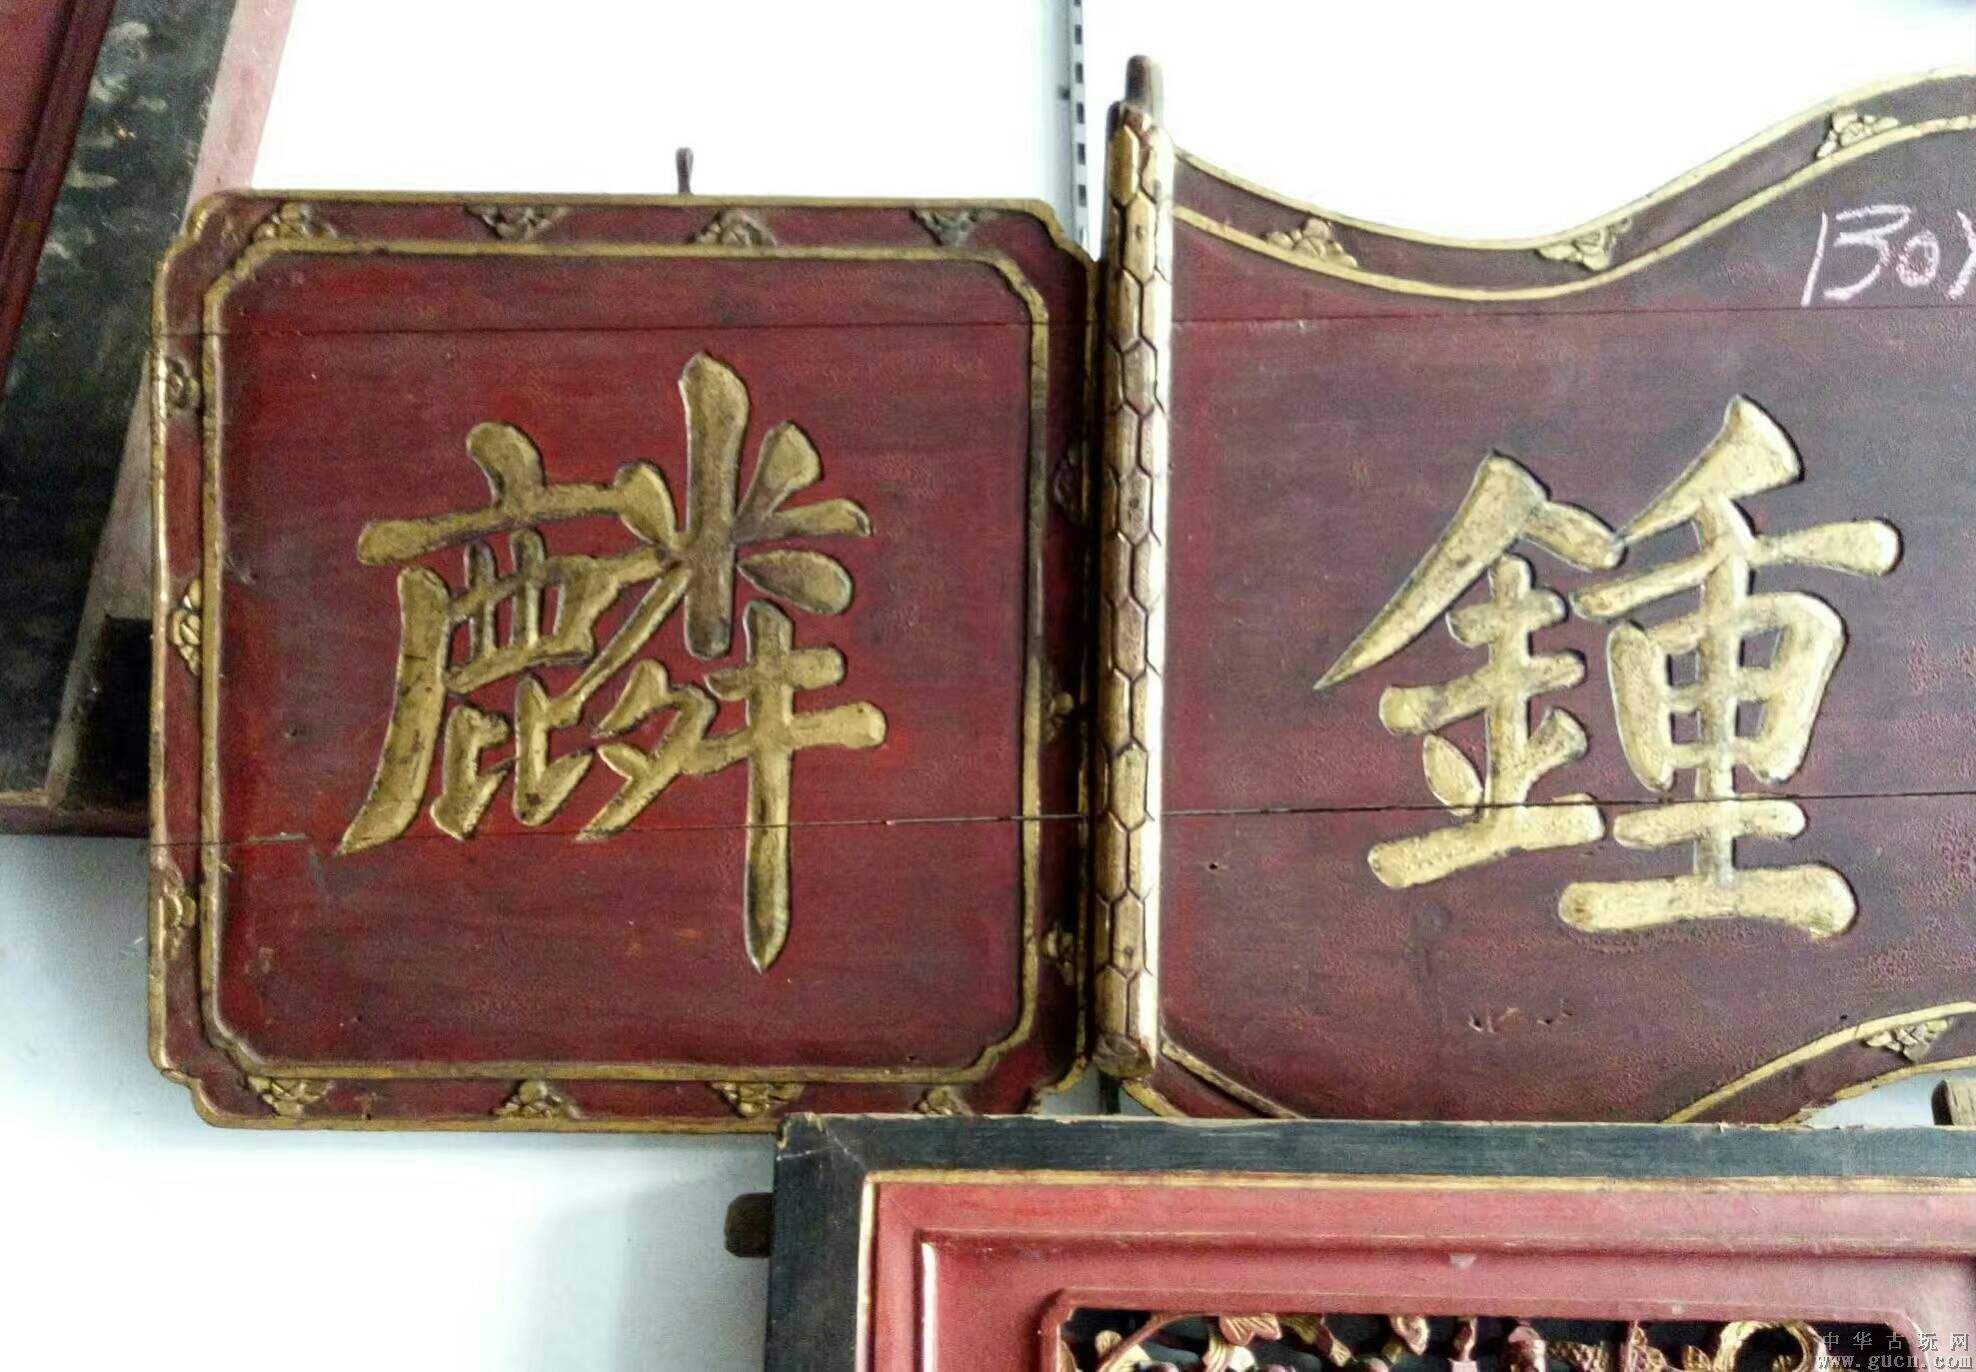 BOX
麟
鍾
中华古玩网
www.gucn.com